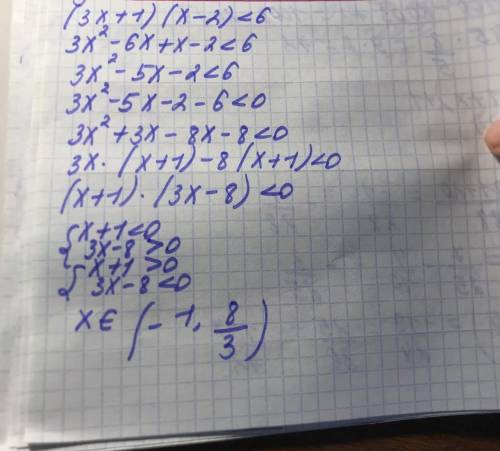 (3x+1)(x-2)<6
3x²-6x+x-2<6
3x²-5x-2<6
3x²-5x-2-6<0
3x²+3x-8x-8<0
3x·(x+1)-8(x+1)<0
(x+1)·(3x-8)<0
{x+1<0
3x-8>0
{x+1>0
3x-8<0
x∈(-1, 8/3)